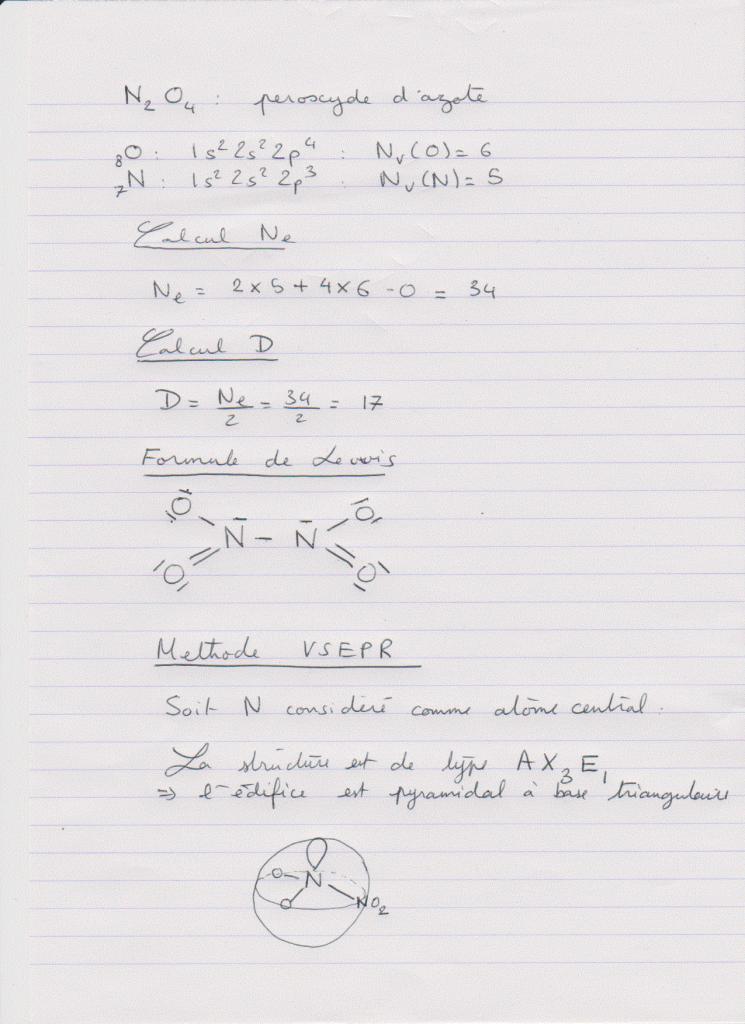 N₂O₄ : peroxyde d'azote
₈O : 1s² 2s² 2p⁴ : Nᵥ(O) = 6
₇N : 1s² 2s² 2p³ : Nᵥ(N) = 5
Calcul Ne
Ne = 2×5 + 4×6 - 0 = 34
Calcul D
D = Ne/2 = 34/2 = 17
Formule de Lewis
O O
N - N
O O
Methode VSEPR
Soit N considéré comme atôme central.
La structure est de type AX₃E₁
⇒ l'édifice est pyramidal à base triangulaire
O N
O NO₂